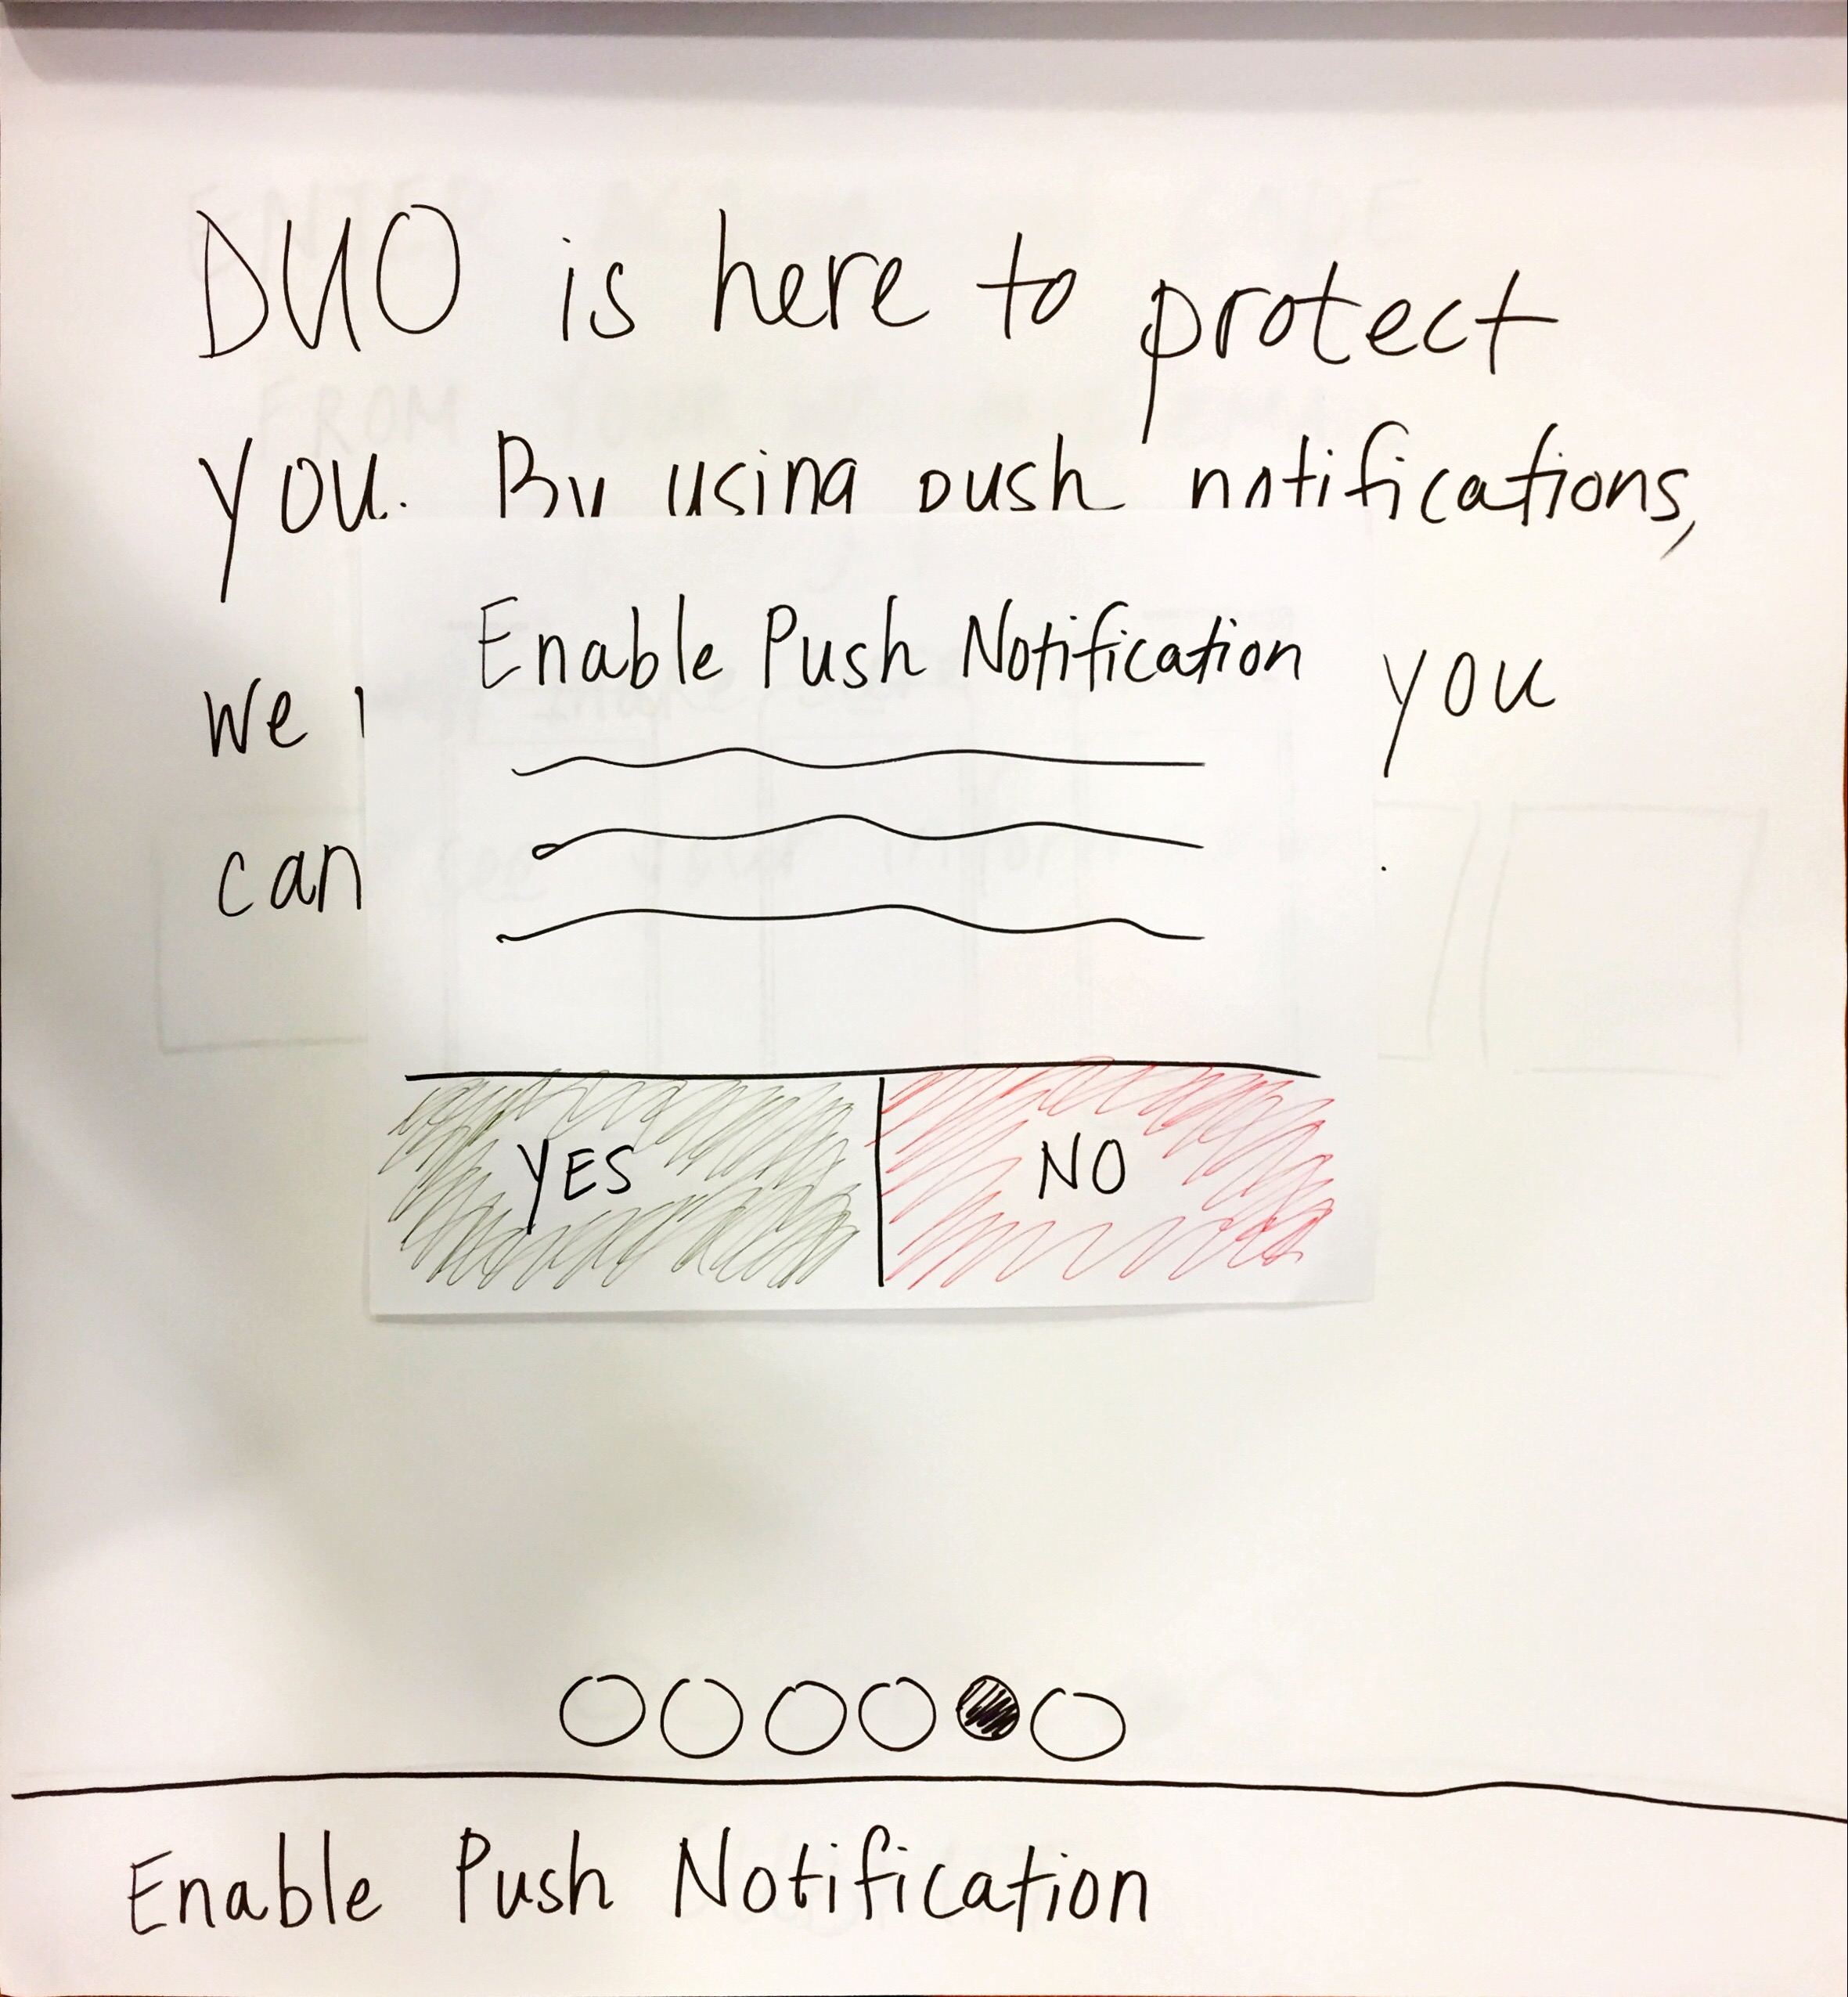 DUO is here to protect
you. By using push notifications,
we you
can .
Enable Push Notification
YES NO
Enable Push Notification